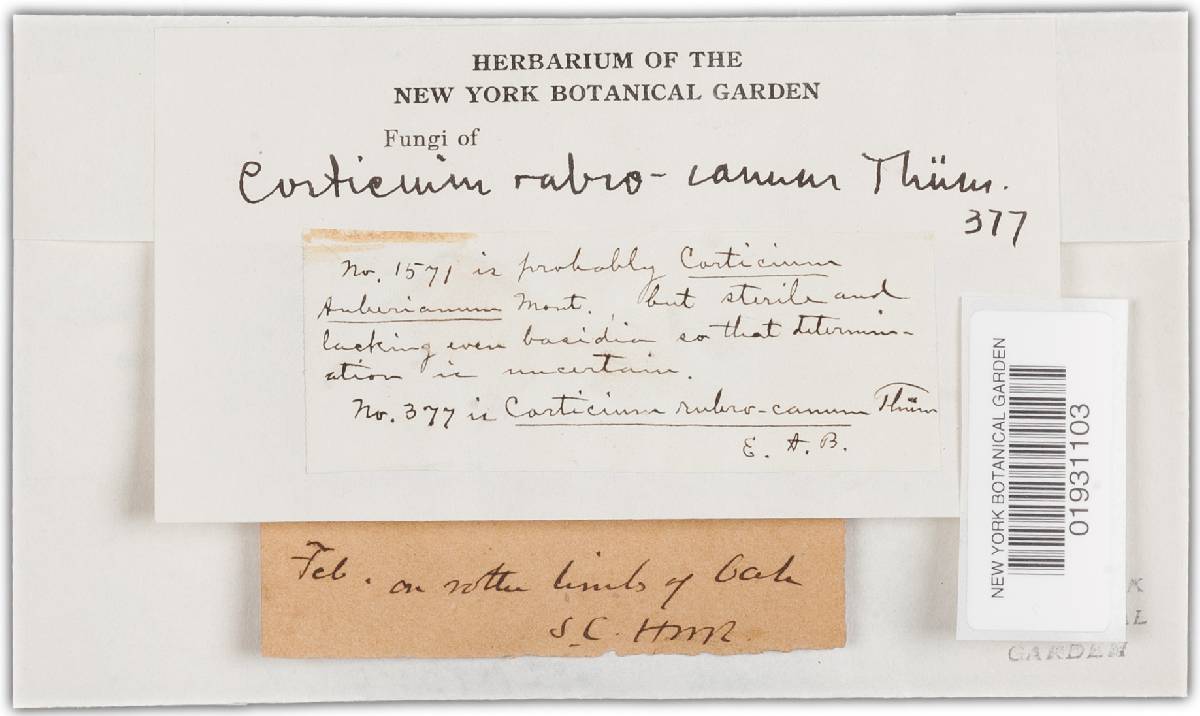 HERBARIUM OF THE
NEW YORK BOTANICAL GARDEN
Fungi of
Corticium rubro-canum Thüm.
377
No. 1571 is probably Corticium
Auberianum Mont., but sterile and
lacking even basidia so that determin-
ation is uncertain.
No. 377 is Corticium rubro-canum Thüm
E. A. B.
Feb. on rotten limbs of Oak
S.C. HWR
NEW YORK BOTANICAL GARDEN
01931103
K
AL
GARDEN